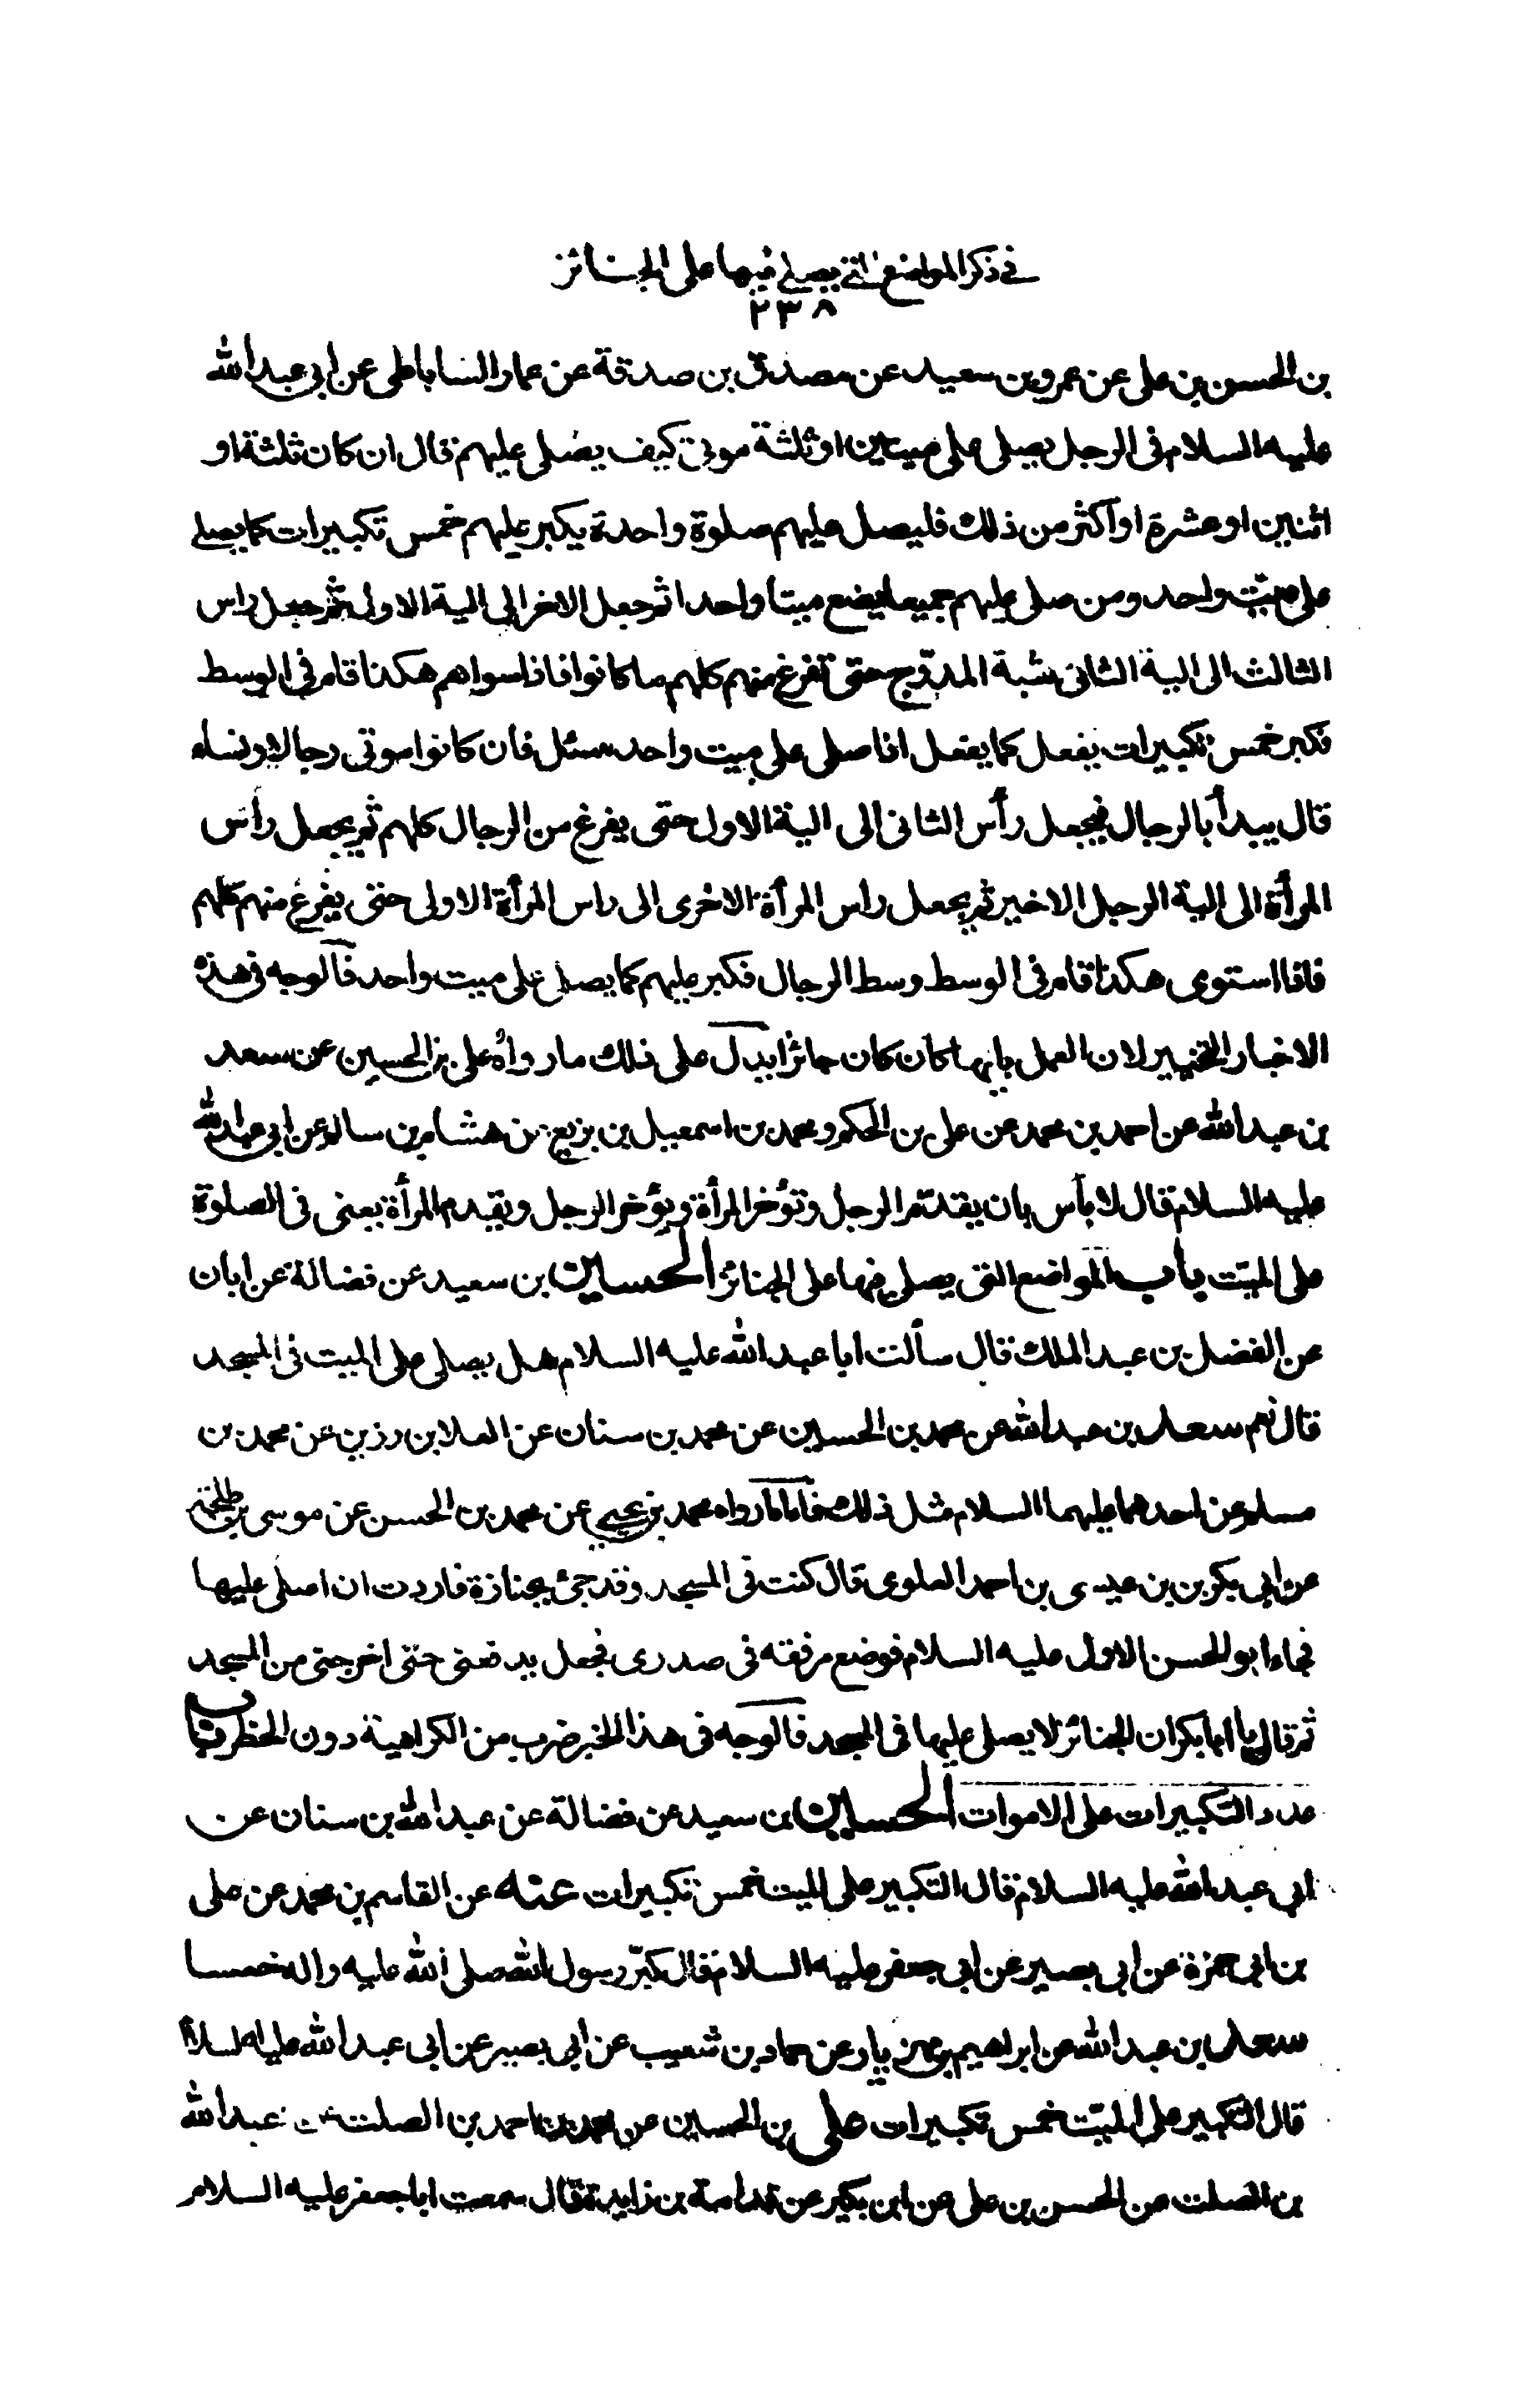 في ذكر المواضع التي يصلى فيها على الجنائز
٢٣٨
بن الحسن بن على عن عمرو بن سعيد عن مصدق بن صدقة عن عمار الساباطى عن ابي عبد الله
عليه السلام فى الرجل يصلى على ميتين او ثلثة موتى كيف يصلى عليهم قال ان كان ثلثة او
اثنين او عشرة او اكثر من ذلك فليصل عليهم صلوة واحدة يكبر عليهم خمس تكبيرات كما يصلى
على ميّت واحد ومن صلى عليهم جميعا يضع ميتا واحدا ثم جعل الاخر الى الية الاول ثم جعل راس
الثالث الى الية الثانى شبة المدرّج حتى تفرغ منهم كلهم ما كانوا فاذا سواهم هكذا قام فى الوسط
فكبر خمس تكبيرات يفعل كما يفعل اذا صلى على ميت واحد سئل فان كانوا موتى رجالا ونساء
قال يبدأ بالرجال فيجعل رأس الثانى الى الية الاول حتى يفرغ من الرجال كلهم ثم يجعل رأس
المرأة الى الية الرجل الاخير ثم يجعل راس المرأة الاخرى الى راس المرأة الاولى حتى يفرغ منهم كلهم
فاذا استوى هكذا قام فى الوسط وسط الرجال فكبر عليهم كما يصلى على ميت واحد فالوجه فى هذه
الاخبار التخيير لان العمل بايها كان كان جائزا يدل على ذلك ما رواه على بن الحسين عن سعد
بن عبد الله عن احمد بن محمد عن على بن الحكم ومحمد بن اسمعيل بن بزيع عن هشام بن سالم عن ابي عبد الله
عليه السلام قال لا بأس بان يقدّم الرجل وتؤخر المرأة ويؤخر الرجل ويقدم المرأة يعنى فى الصلوة
على الميّت باب المواضع التى يصلى فيها على الجنائز الحسين بن سعيد عن فضالة عن ابان
عن الفضل بن عبد الملك قال سألت ابا عبد الله عليه السلام هل يصلى على الميت فى المسجد
قال نعم سعد بن عبد الله عن محمد بن الحسين عن محمد بن سنان عن العلا بن رزين عن محمد بن
مسلم عن احدهما عليهما السلام مثل ذلك فاما ما رواه محمد بن يحيى عن محمد بن الحسن عن موسى بن طلحة
عن ابى بكر بن بن عيسى بن احمد العلوى قال كنت فى المسجد وقد جئ بجنازة فاردت ان اصلى عليها
فجاء ابو الحسن الاول عليه السلام فوضع مرفقه فى صدرى فجعل يدفعنى حتى اخرجنى من المسجد
ثم قال يا ابا بكر ان الجنائز لا يصلى عليها فى المسجد فالوجه فى هذا الخبر ضرب من الكراهية دون الحظر باب
عدد التكبيرات على الاموات الحسين بن سعيد عن فضالة عن عبد الله بن سنان عن
ابى عبد الله عليه السلام قال التكبير على الميت خمس تكبيرات عنه عن القاسم بن محمد عن على
بن ابى حمزة عن ابى بصير عن ابى جعفر عليه السلام قال كبّر رسول الله صلى الله عليه واله خمسا
سعد بن عبد الله عن ابراهيم بن مهزيار عن حماد بن شعيب عن ابى بصير عن ابى عبد الله عليه السلام
قال التكبير على الميّت خمس تكبيرات على بن الحسين عن احمد بن الصلت عن عبد الله
بن الصلت عن الحسن بن على عن ابن بكير عن قدامة بن زايدة قال سمعت ابا جعفر عليه السلام